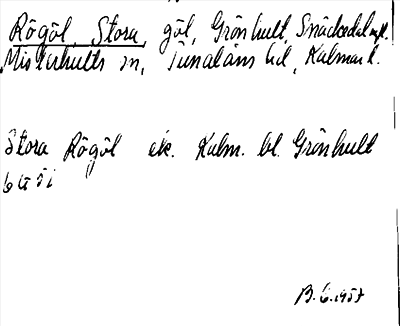 Rögöl, Stora, göl, Grönhult, Snäckedal
Misterhults sn, Tunaläns hd, Kalmar l.
Stora Rögöl ek. Kalm. bl. Grönhult
6 a 5 i
B. 6. 1957